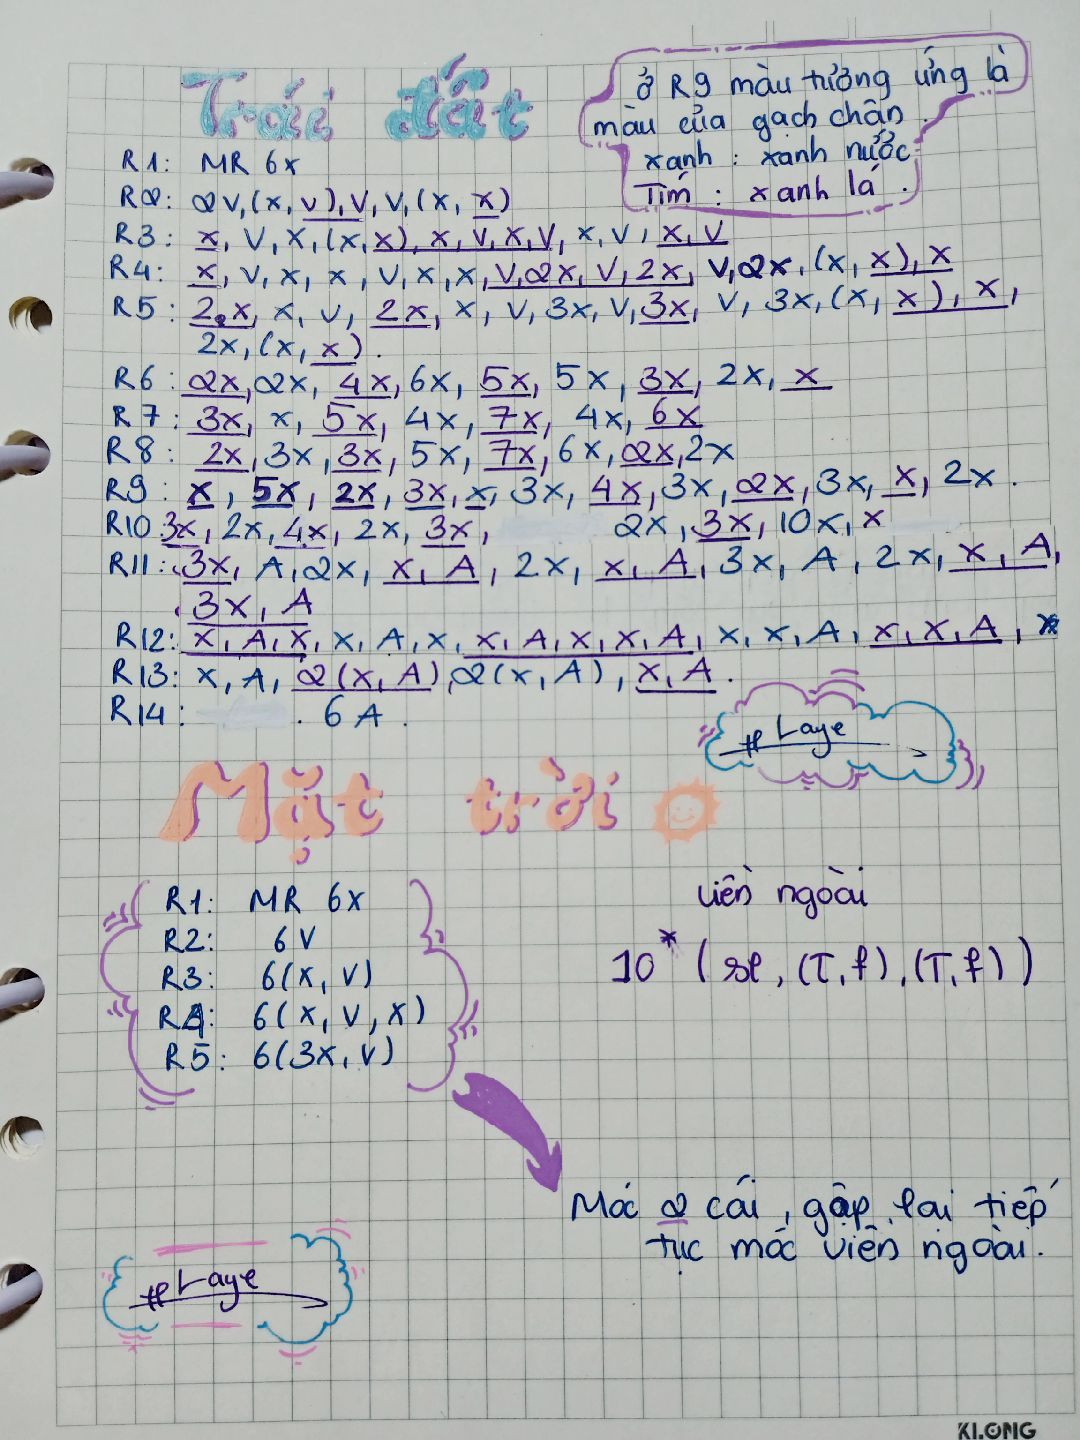 Trái đất
ở R9 màu tưởng ứng là
màu của gạch chân.
xanh : xanh nước
Tím : xanh lá.
R1: MR 6x
R2: 2V,(x, v), V, V, (x, x)
R3: x, V, x, (x, x), x, V, x, V, x, V, x, V
R4: x, v, x, x, V, x, x, V, 2x, V, 2x, V, 2x, (x, x), x
R5: 2x, x, v, 2x, x, V, 3x, V, 3x, V, 3x, (x, x), x,
2x, (x, x).
R6: 2x, 2x, 4x, 6x, 5x, 5x, 3x, 2x, x
R7: 3x, x, 5x, 4x, 7x, 4x, 6x
R8: 2x, 3x, 3x, 5x, 7x, 6x, 2x, 2x
R9: x, 5x, 2x, 3x, x, 3x, 4x, 3x, 2x, 3x, x, 2x.
R10: 3x, 2x, 4x, 2x, 3x, 2x, 3x, 10x, x
R11: 3x, A, 2x, x, A, 2x, x, A, 3x, A, 2x, x, A,
3x, A
R12: x, A, x, x, A, x, x, A, x, x, A, x, x, A, x, x, A, x
R13: x, A, 2(x, A), 2(x, A), x, A.
R14: . 6A.
# Laye
Mặt trời
R1: MR 6x
R2: 6V
R3: 6(x, V)
R4: 6(x, V, x)
R5: 6(3x, V)
viền ngoài
10* (sl, (T, f), (T, f))
Móc 2 cái, gập lại tiếp
tục móc viền ngoài.
# Laye
KLONG